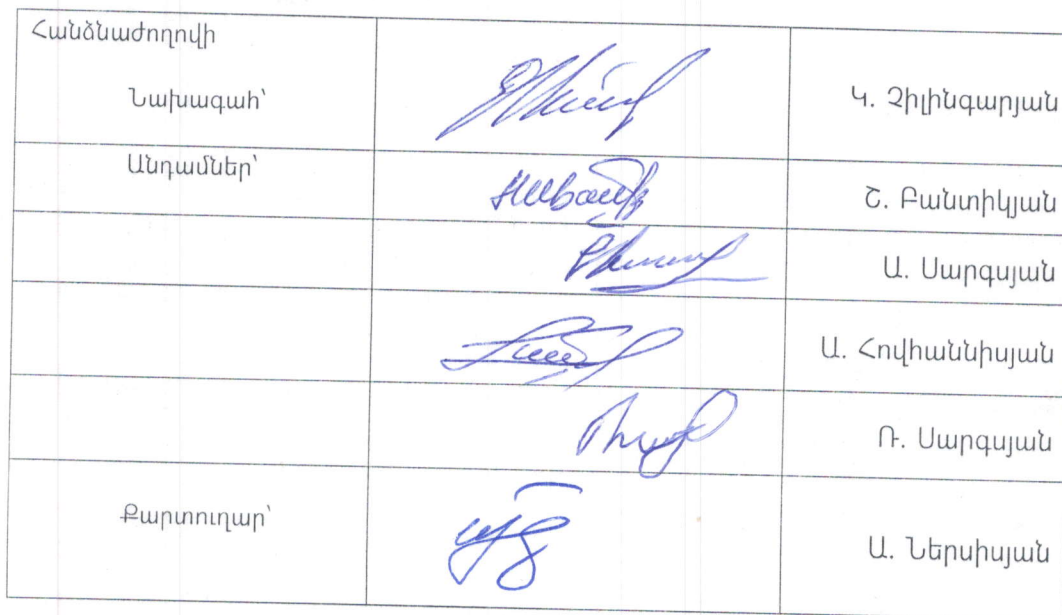 Հանձնաժողովի
Նախագահ՝
Կ. Չիլինգարյան
Անդամներ՝
Շ. Բանտիկյան
Ա. Սարգսյան
Ա. Հովհաննիսյան
Ռ. Սարգսյան
Քարտուղար՝
Ա. Ներսիսյան